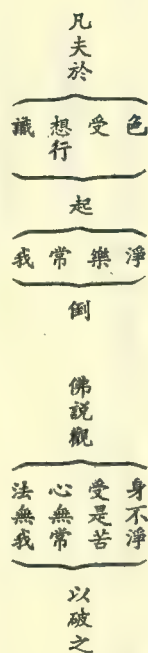 凡夫於
色
受
想行
識
起
淨
樂
常
我
倒
佛說觀
身不淨
受是苦
心無常
法無我
以破之